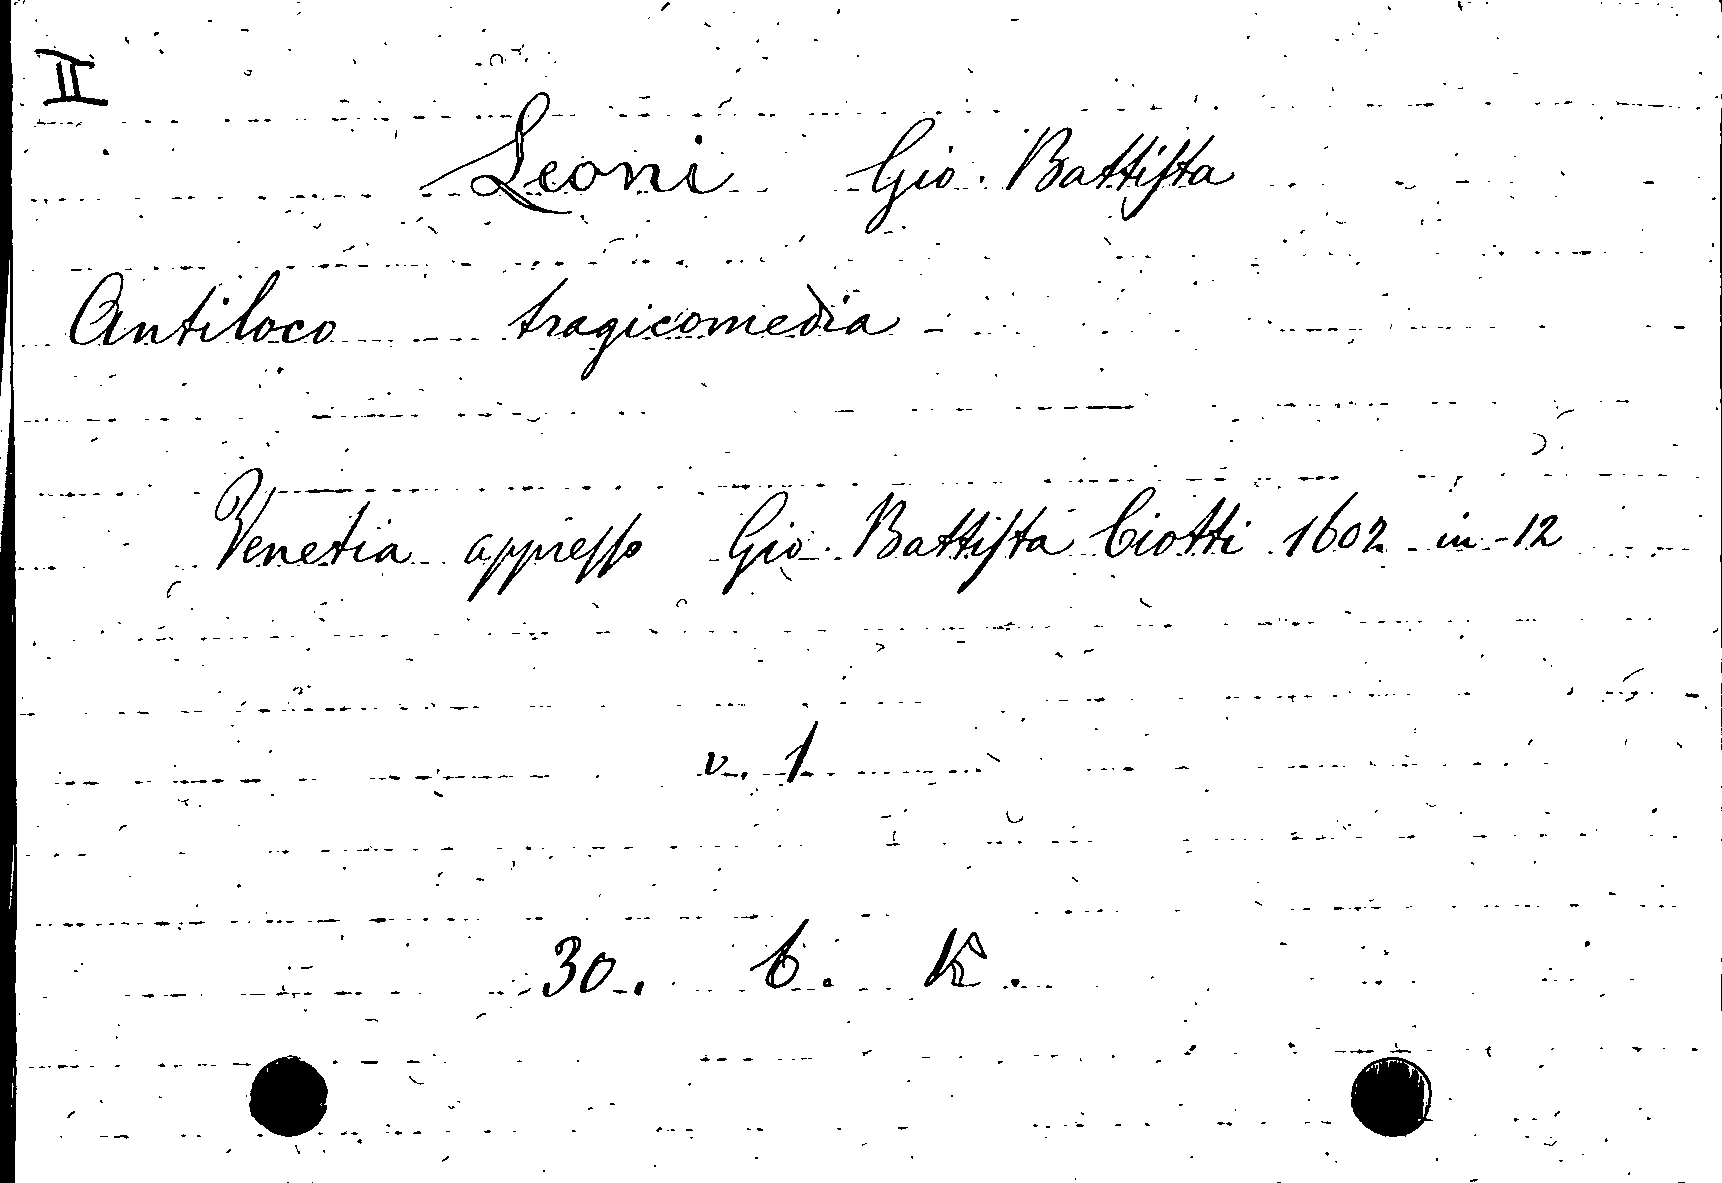 II
Leoni Gio. Battiſta
Antiloco tragicomedia -
Venetia appreſſo Gio. Battiſta Ciotti 1602 in-12
v. 1
30. C. K.